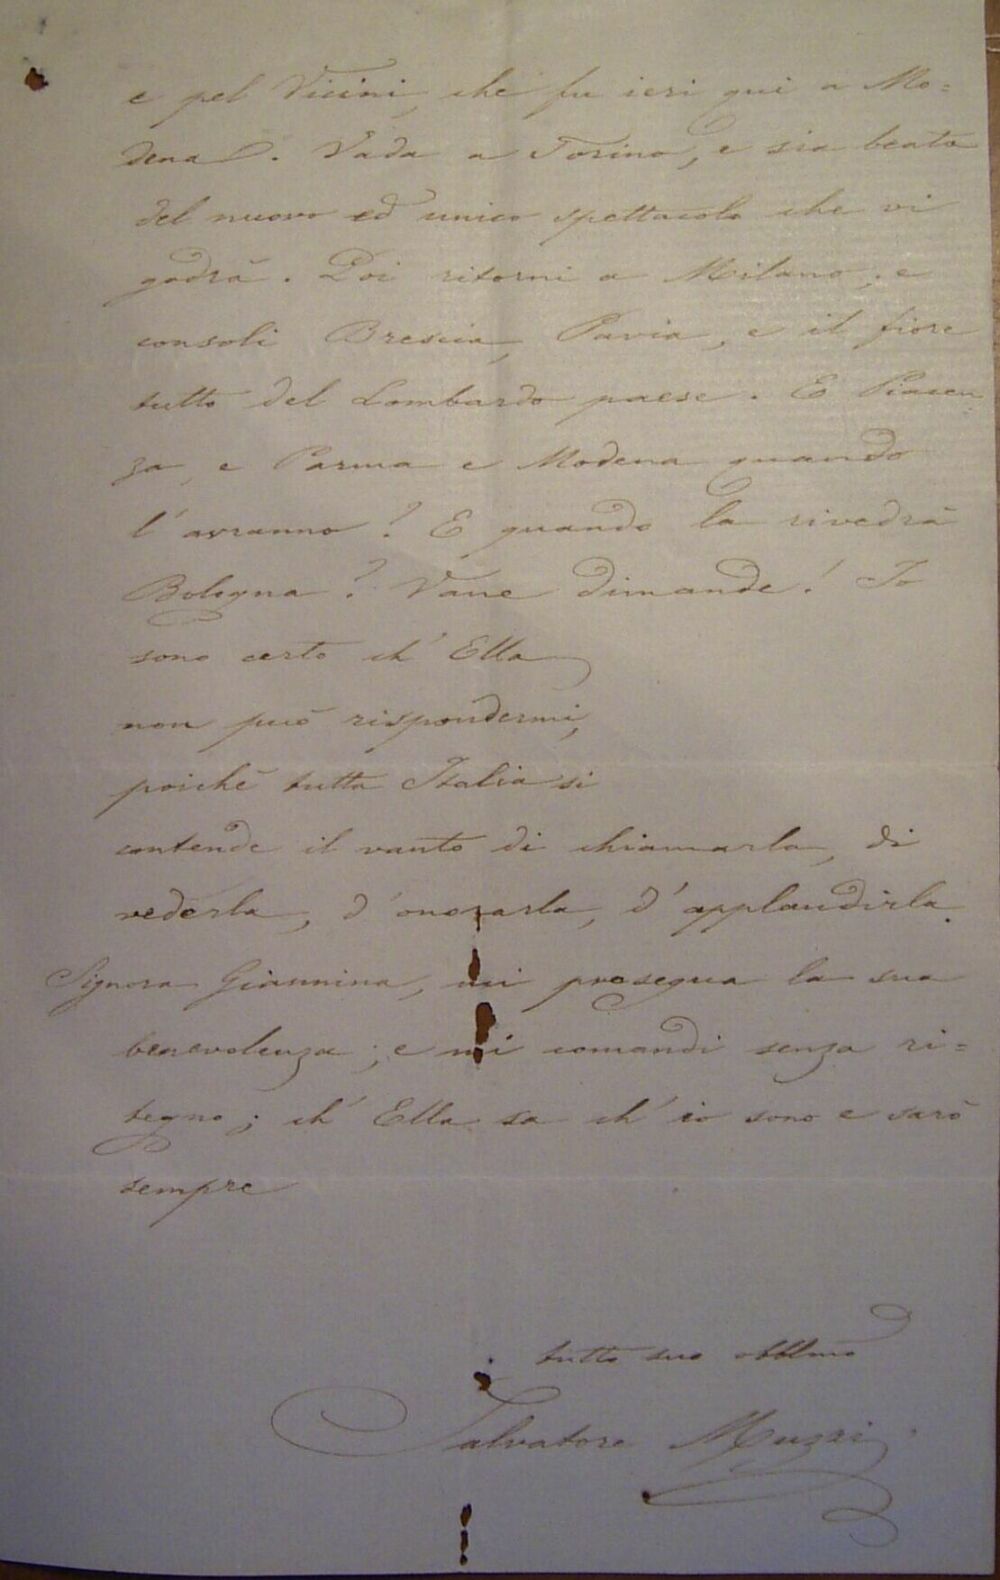 e pel Vicini, che fu ieri qui a Mo=
dena. Vada a Torino, e sia beata
del nuovo ed unico spettacolo che vi
godrà. Poi ritorni a Milano; e
consoli Brescia, Pavia, e il fiore
tutto del Lombardo paese. E Piacen
za, e Parma e Modena quando
l'avranno? E quando la rivedrà
Bologna? Vane dimande! Io
sono certo ch'Ella
non può rispondermi,
poichè tutta Italia si
contende il vanto di chiamarla, di
vederla, d'onorarla, d'applaudirla.
Signora Giannina, mi prosegua la sua
benevolenza; e mi comandi senza ri=
tegno; ch'Ella sa ch'io sono e sarò
sempre
tutto suo obblmo
Salvatore Muzzi